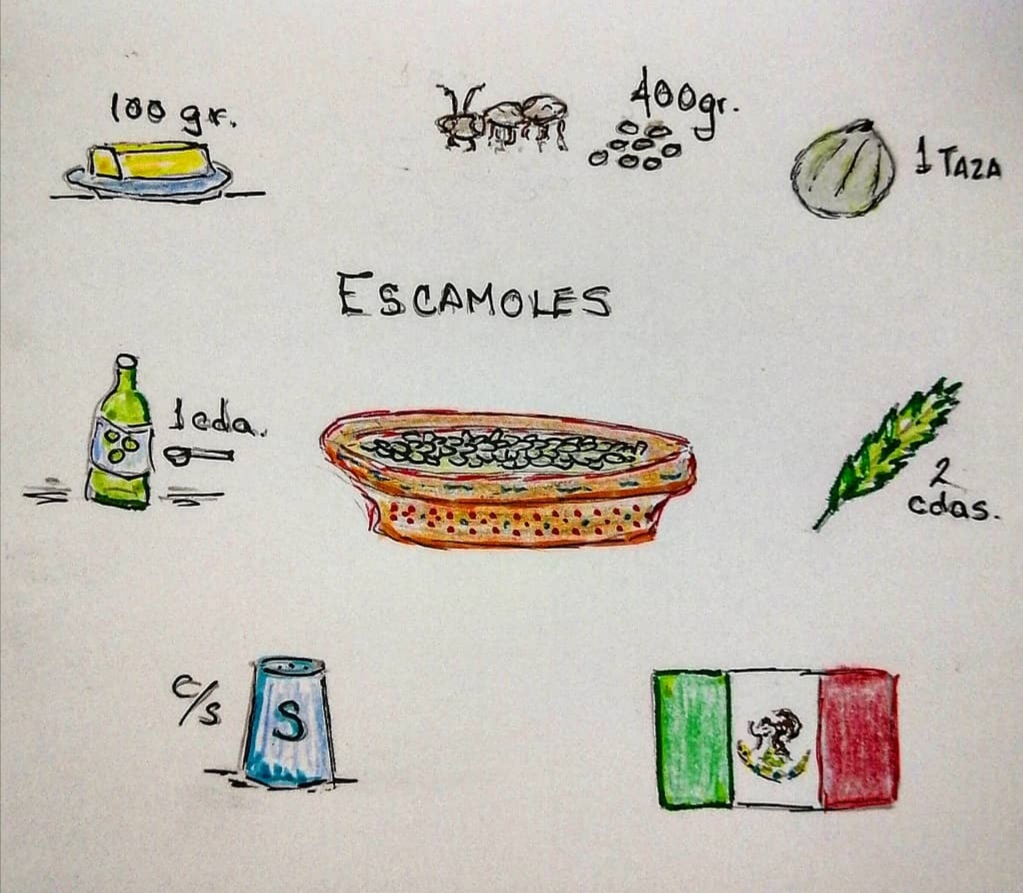 100 gr.
400gr.
1 TAZA
ESCAMOLES
1 cda.
2
cdas.
c/s
S